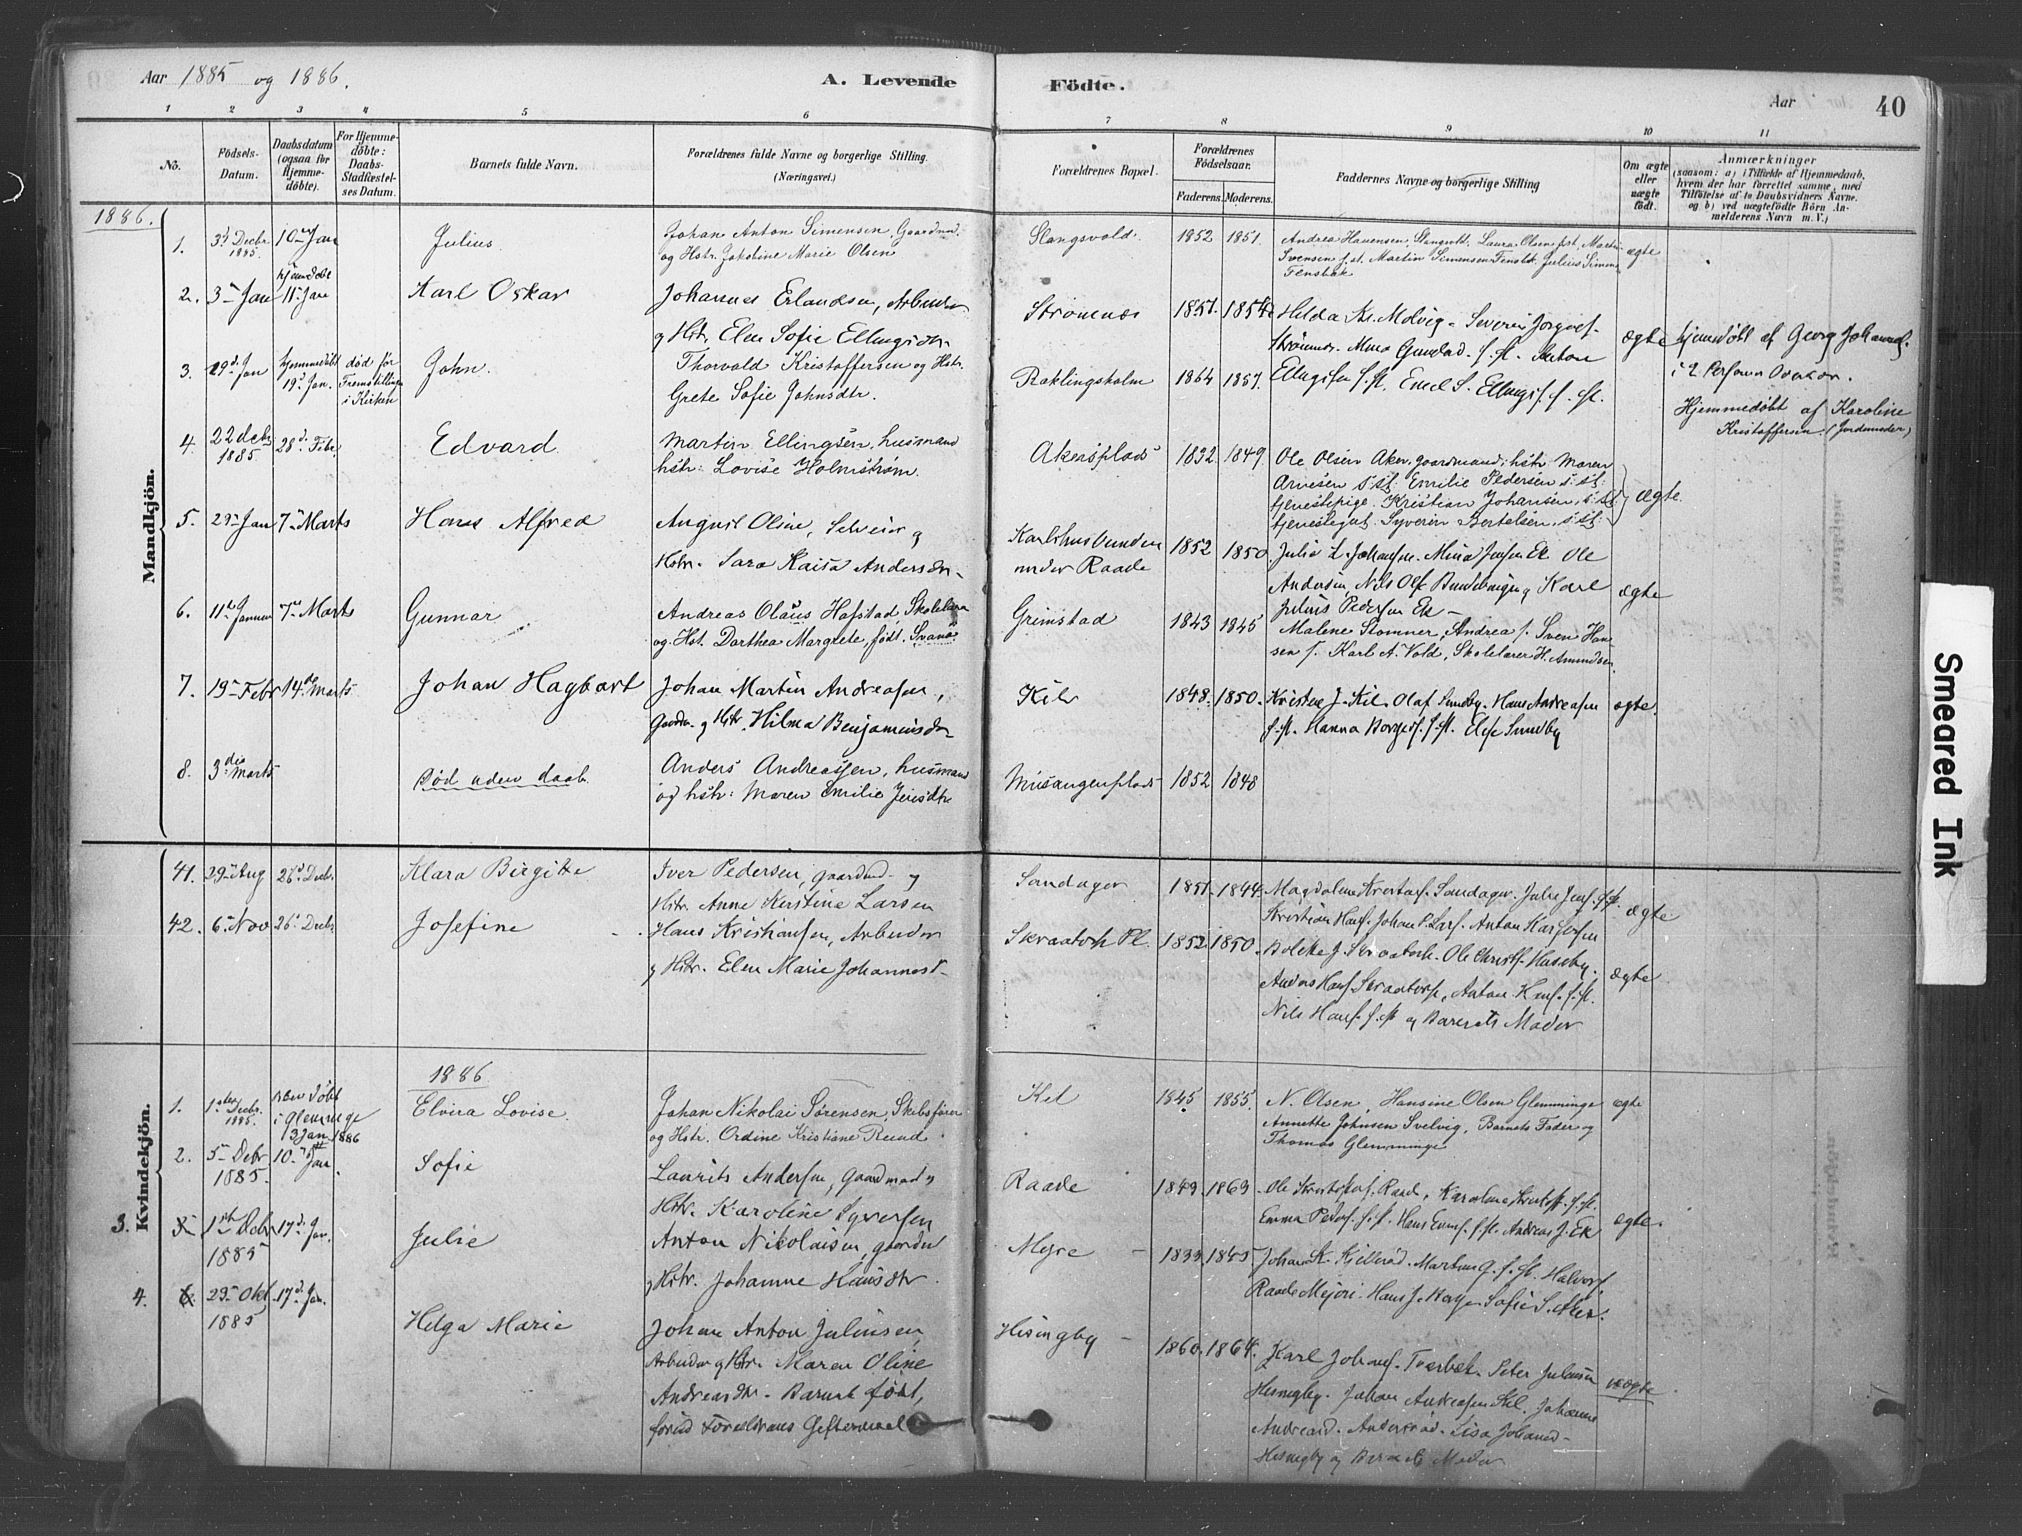 Aar 1885 og 1886.
A. Levende
Födte.
Aar
40
1 2 3 4 5 6 7 8 9 10 11
No.
Födsels-
Datum.
Daabsdatum
(ogsaa för
Hjemme-
döbte).
For Hjemme-
döbte:
Daabs-
Stadfæstel-
ses Datum.
Barnets fulde Navn.
Forældrenes fulde Navne og borgerlige Stilling.
(Næringsvei.)
Forældrenes Bopæl.
Forældrenes
Födselsaar.
Faderens. Moderens.
Faddernes Navne og borgerlige Stilling
Om ægte
eller
uægte
födt.
Anmærkninger
(saasom: a) i Tilfælde af Hjemmedaab,
hvem der har forrettet samme, med
Tilföielse af to Daabsvidners Navne.
og b) ved uægtefödte Börn An-
melderens Navn m. V.)
1886.
Mandkjön.
1. 31 Decbr 1885. 10 Jan
Julius.
Johan Anton Simensen, Gaardmd.
og Hstr. Jakoline Marie Olsen
Slangsvold. 1852 1851.
Andrea Hansensen, Slangsvold, Laura Olsen
Svensen s. st. Martin Simensen Fenstak, Julius Simens
Fenstak
ægte
2. 3 Jan 11 Jan
Karl Oskar
Johannes Erlandsen, Arbeider
og Hstr. Elen Sofie Ellingsdtr.
Strömnæs 1851. 1854
Hilda Kr. Molvig. Severin
Strömnes. Mina s. st. Anton
Ellingsen s. st. Emil S. Ellings. s. st.
ægte
hjemdöbt af Georg Johannes.
i 2 Personers Overvær.
3. 29 Jan hjemmedöbt 19 Jan. död för
Fremstillingen
i Kirken
John.
Thorvald Kristoffersen og Hstr.
Grete Sofie Johnsdtr.
Raklingsholm 1864 1857.
Hjemmedöbt af Karoline
Kristoffersen (Jordemoder)
4. 22 decbr 1885 28 Febr
Edvard
Martin Ellingsen, husmand
hstr: Lovise Holmström.
Akersplads 1832. 1849.
Ole Olsen Aker, gaardmand, hstr Maren
Arvesen s. st: Emilie Pedersen s. st:
tjenestepige. Kristian Johansen, s: st
tjenestegut. Syverin Bertelsen, s: st:
ægte.
5. 29 Jan 7 Marts
Hans Alfred
August Oline, Selveier og
Hstr. Sara Kaisa Andersdtr.
Karlshusbunden
under Raade
1852 1850.
Julie L. Johansen. Mina Jensen Ek Ole
Andersen Nils Ols Bundebringen og Karl
Julius Pedersen Ek
ægte
6. 11 Januar 7 Marts
Gunnar
Andreas Olaus Hafstad, Skolelærer
og Hst. Dorthea Margrete, födt. Svanö.
Grimstad 1843 1845
Malene Stomner, Andrea s. Sven Han
sen s. Karl A. Vold, Skolelærer H. Amundsen
7. 19 Febr 14 Marts
Johan Hagbart
Johan Martin Andreasen,
Gaardm. og Hstr. Hilma Benjaminsdtr
Kile 1848. 1850.
Kristine J. Kil. Olaf Sundby. Hans Andreasen
s. st. Hanna Borges. s. st. Else Sundby
ægte.
8. 3die Marts
Död uden daab.
Anders Andreassen, husmand
og hstr: Maren Emilie Jensdtr
Missingenplads 1852 1848
Kvindekjön.
41. 29 Aug 26 Decbr.
Klara Birgitte
Iver Pedersen, gaardmd. og
Hstr. Anne Kerstine Larsen
Sandager 1851. 1844.
Magdalene Kristof. Sandager. Julie Jens. s. st.
Kristian Hans. Johan P. Lars. Anton
ægte
42. 6 Nov 26 Decbr
Josefine
Hans Kristiansen, Arbeider
og Hstr. Elen Marie Johannesd.
Skraatorp Pl. 1852 1850.
Bolette J. Skraatorp. Ole Christ. Huseby.
Anders Hans. Skraatorp, Anton s. st.
Nils Hans. s. st og Barnets Moder
ægte.
1886
1. 1ste Decbr. 1885. döbt
i Glemminge
13 Jan 1886
Elvira Lovise.
Johan Nikolai Sörensen, Skibsförer
og Hstr. Ordine Kristiane Ruud.
Kil 1845 1855.
N. Olsen, Hansine Olsen Glemminge
Annette Johnsen Svelvig, Barnets Fader og
Thomas Glemminge
ægte
2. 5 Debr 1885. 10 Jan.
Sofie
Laurits Andersen, gaardmand og
Hstr. Karoline Syversen
Raade 1849. 1863.
Ole Kristofs. Raad, Karoline Kristoff. s. st.
Emma Peders. s. st. Hans s. st. Andreas J. Ek
ægte.
3. 1 Debr 1885 17 Jan.
Julie
Anton Nikolaisen, gaardmd
og Hstr. Johanne Hansdtr.
Myre 1833 1845
Johan K. Kjelleröd. Martin s. st. Halvors.
Raade Mejeri. Hans J. Sofie S. Aker.
4. 29 Okt. 1885 17 Jan.
Helga Marie
Johan Anton Juliussen,
Arbeider og Hstr. Maren Oline
Andreasdtr. Barnet födt,
forend Forældrenes Giftermaal
Hesingby 1860. 1864.
Karl Johans. Tverbek. Peter Juliussen
Hesingby. Johan Andreasen Kil. Johanne
Andreasd. Anderröd. Lisa Johansd.
Hesingby og Barnets Moder
uægte.
Smeared Ink